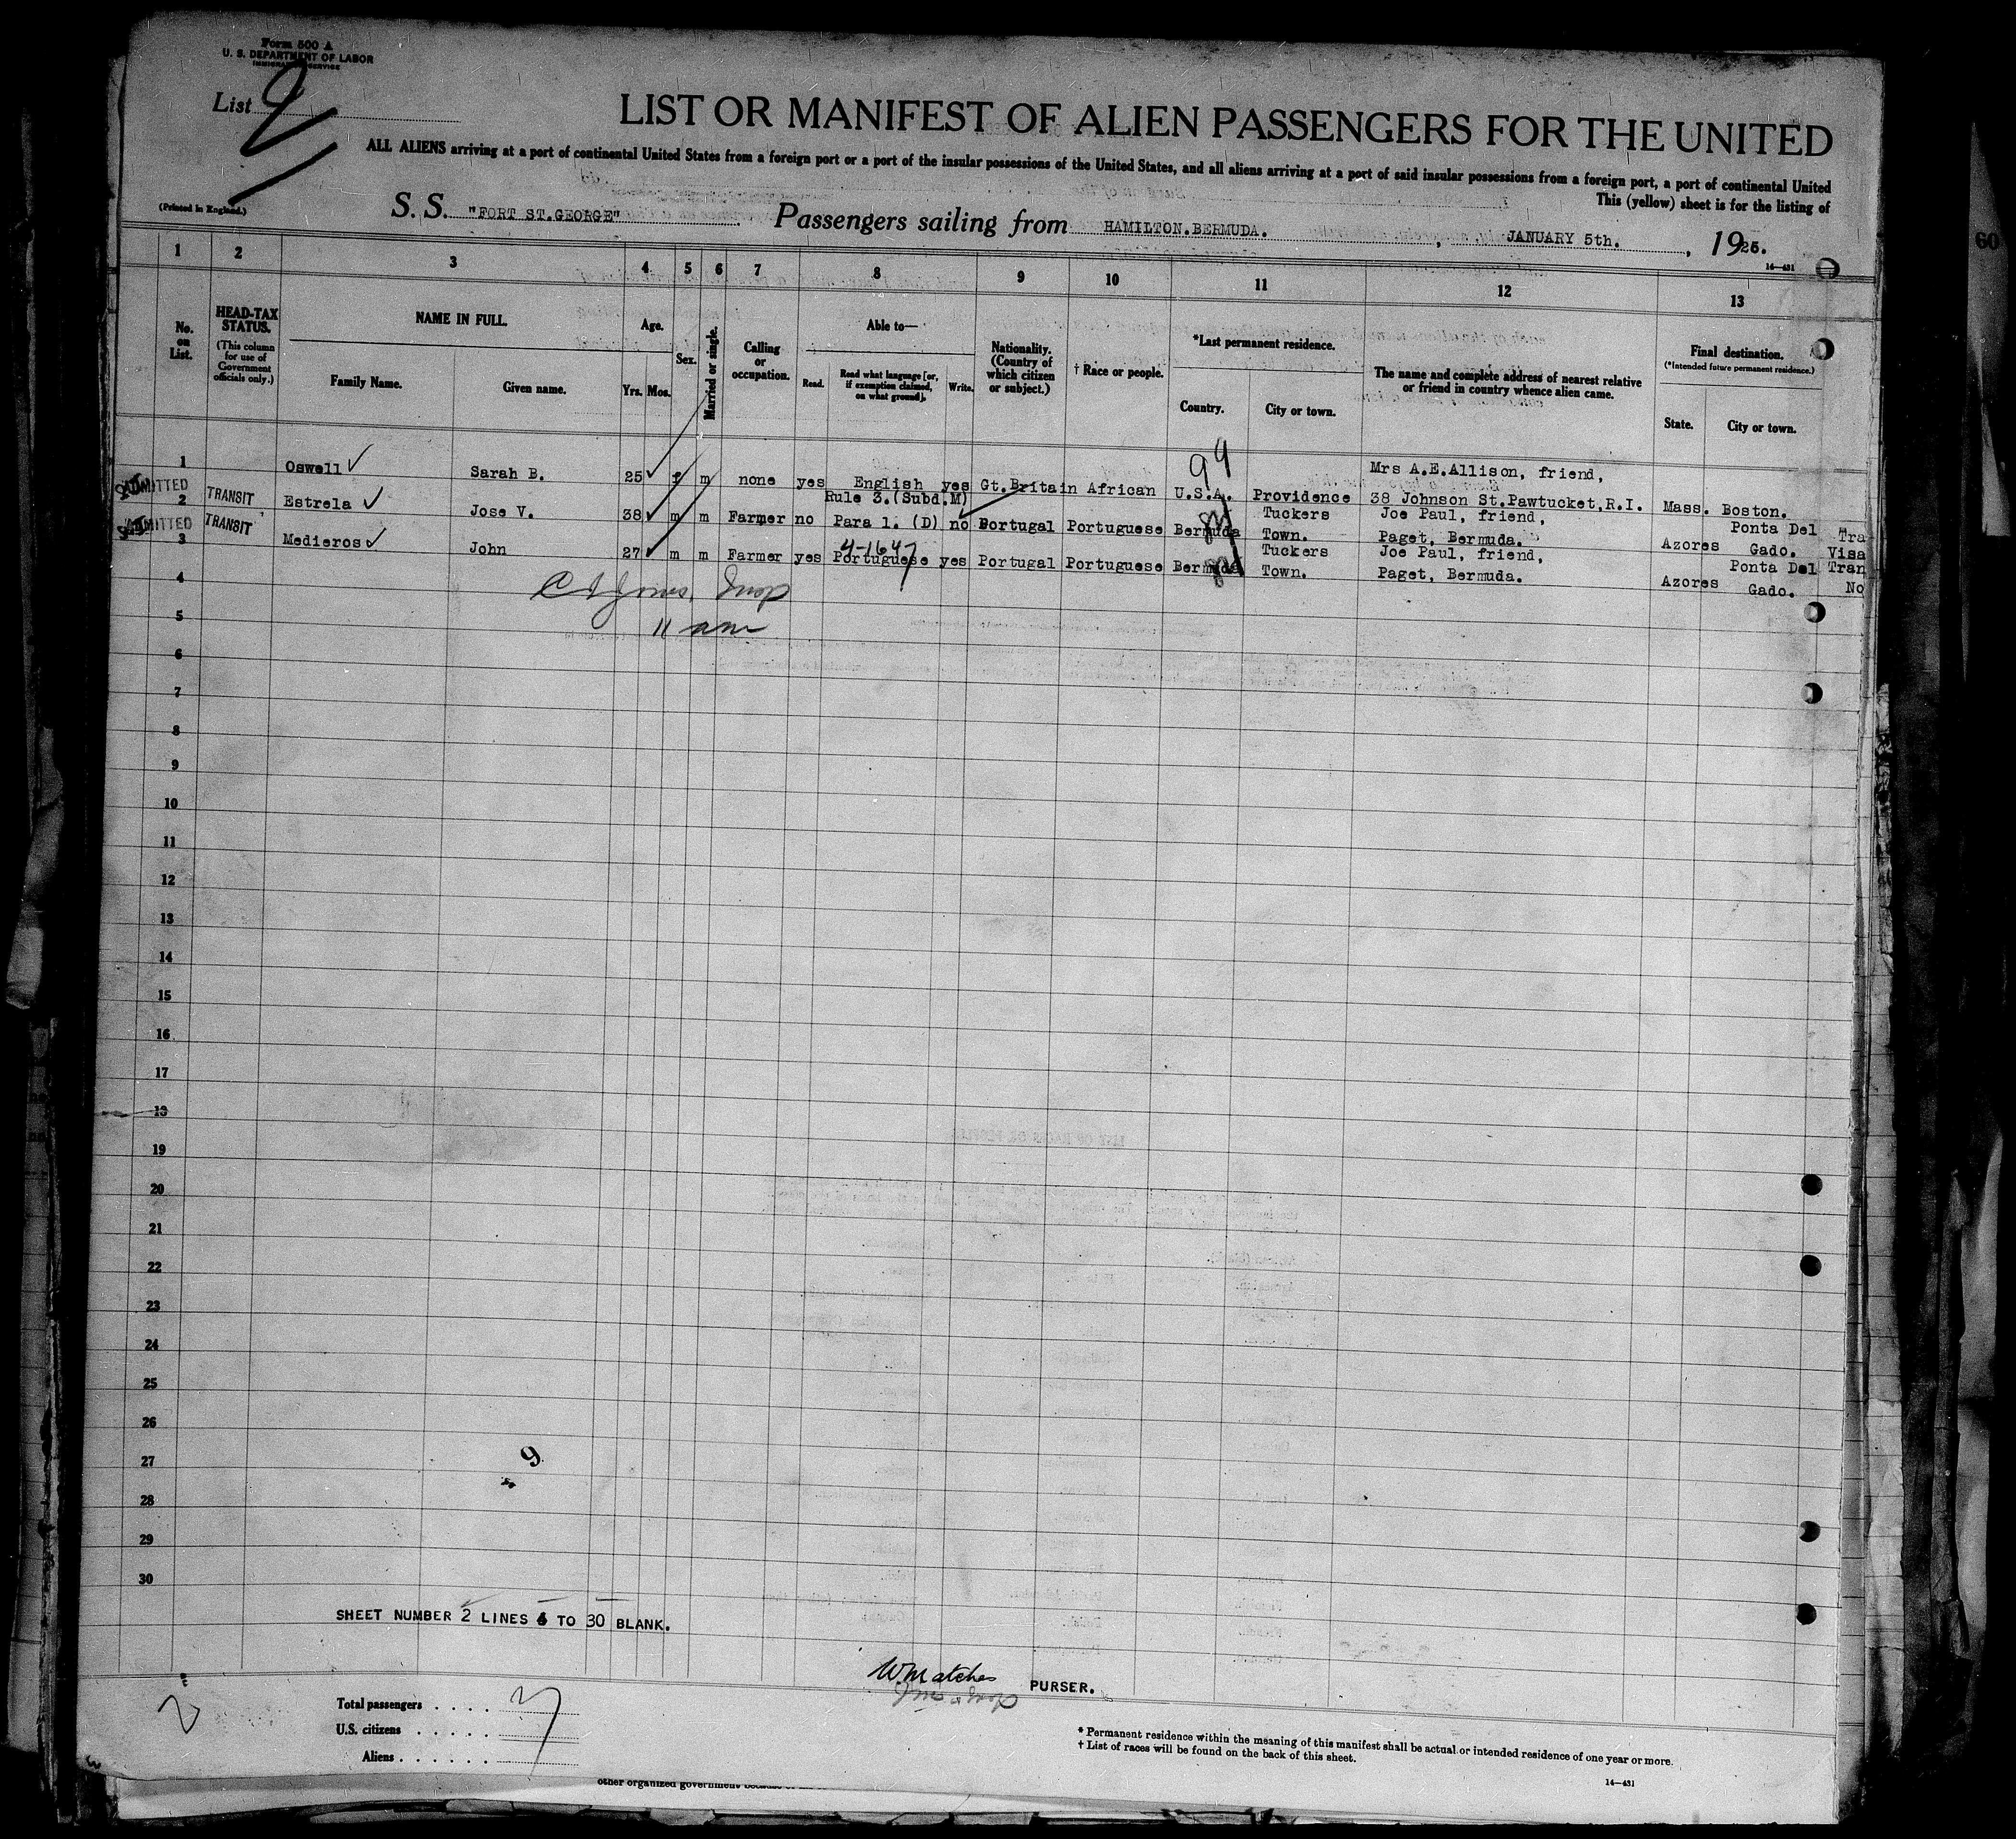 Form 500 A
U. S. DEPARTMENT OF LABOR
IMMIGRATION SERVICE
List 2
LIST OR MANIFEST OF ALIEN PASSENGERS FOR THE UNITED
ALL ALIENS arriving at a port of continental United States from a foreign port or a port of the insular possessions of the United States, and all aliens arriving at a port of said insular possessions from a foreign port, a port of continental United
This (yellow) sheet is for the listing of
(Printed in England.)
S. S. "FORT ST.GEORGE" Passengers sailing from HAMILTON.BERMUDA. , JANUARY 5th. , 1926.
14—431
1 2 3 4 5 6 7 8 9 10 11 12 13
No. on List.
HEAD-TAX STATUS. (This column for use of Government officials only.)
NAME IN FULL.
Family Name. Given name.
Age.
Yrs. Mos.
Sex.
Married or single.
Calling or occupation.
Able to—
Read. Read what language [or, if exemption claimed, on what ground]. Write.
Nationality. (Country of which citizen or subject.)
† Race or people.
*Last permanent residence.
Country. City or town.
The name and complete address of nearest relative or friend in country whence alien came.
Final destination.
(*Intended future permanent residence.)
State. City or town.
99
1 Oswell Sarah B. 25 f m none yes English yes Gt.Britain African U.S.A. Providence Mrs A.E.Allison, friend, 38 Johnson St.Pawtucket,R.I. Mass. Boston.
ADMITTED
2 TRANSIT Estrela Jose V. 38 m m Farmer no Rule 3.(Subd.M) Para 1. (D) no Portugal Portuguese Bermuda Tuckers Town. Joe Paul, friend, Paget, Bermuda. Azores Ponta Del Gado. Tra Visa
ADMITTED
3 TRANSIT Medieros John 27 m m Farmer yes Portuguese yes Portugal Portuguese Bermuda Tuckers Town. Joe Paul, friend, Paget, Bermuda. Azores Ponta Del Gado. Tran No
4-1647
4
11 am
5
6
7
8
9
10
11
12
13
14
15
16
17
18
19
20
21
22
23
24
25
26
9
27
28
29
30
SHEET NUMBER 2 LINES 4 TO 30 BLANK.
PURSER.
2
Total passengers . . . .
U.S. citizens . . . . .
Aliens . . . . . .
* Permanent residence within the meaning of this manifest shall be actual or intended residence of one year or more.
† List of races will be found on the back of this sheet.
14—431
other organized government because of